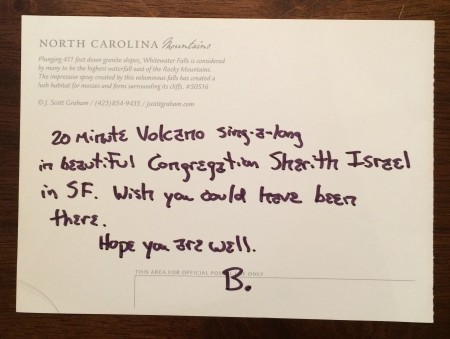 NORTH CAROLINA Mountains
Plunging 411 feet down granite slopes, Whitewater Falls is considered
by many to be the highest waterfall east of the Rocky Mountains.
The impressive spray created by this voluminous falls has created a
lush habitat for mosses and ferns surrounding its cliffs. #50516
© J. Scott Graham / (423) 854-9435 / jscottgraham.com
20 Minute Volcano Sing-a-long
in beautiful Congregation Sherith Israel
in SF. Wish you could have been
there.
Hope you are well.
THIS AREA FOR OFFICIAL POSTAL USE ONLY
B.